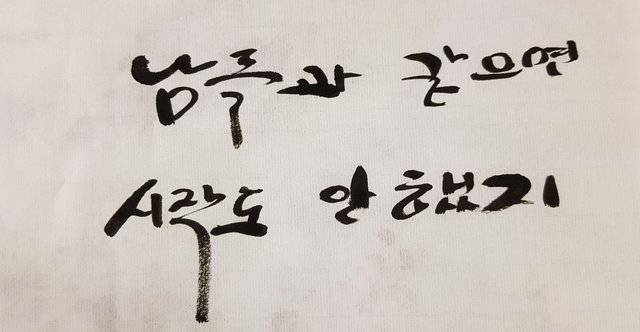 남들과 같으면
시작도 안 했지